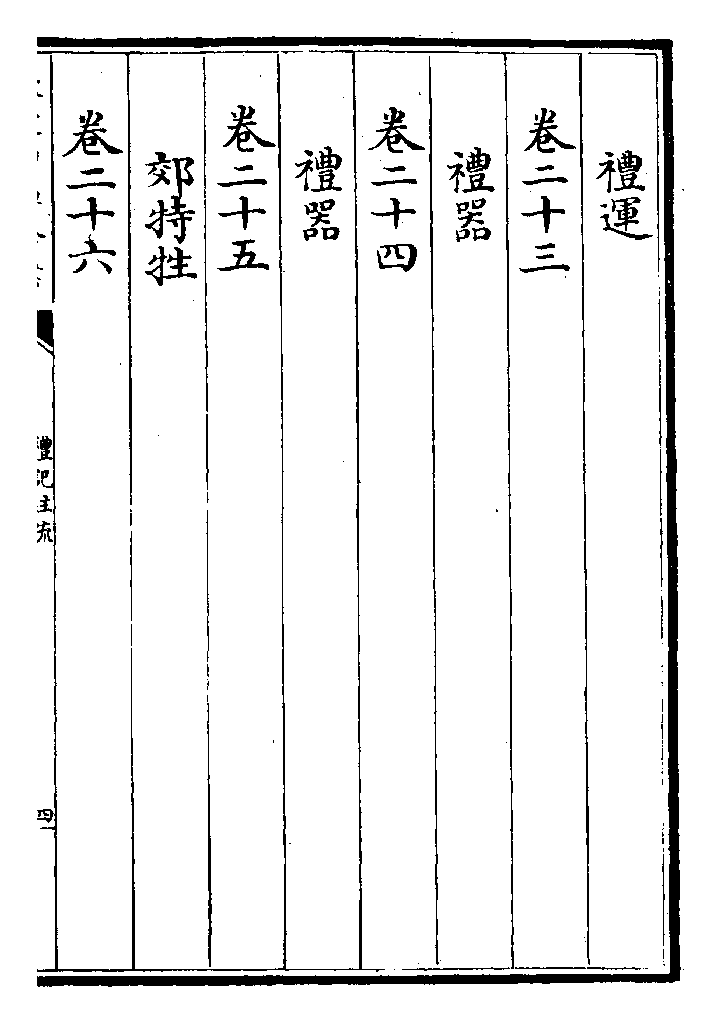 禮運
卷二十三
禮器
卷二十四
禮器
卷二十五
郊特牲
卷二十六
禮記注疏
四